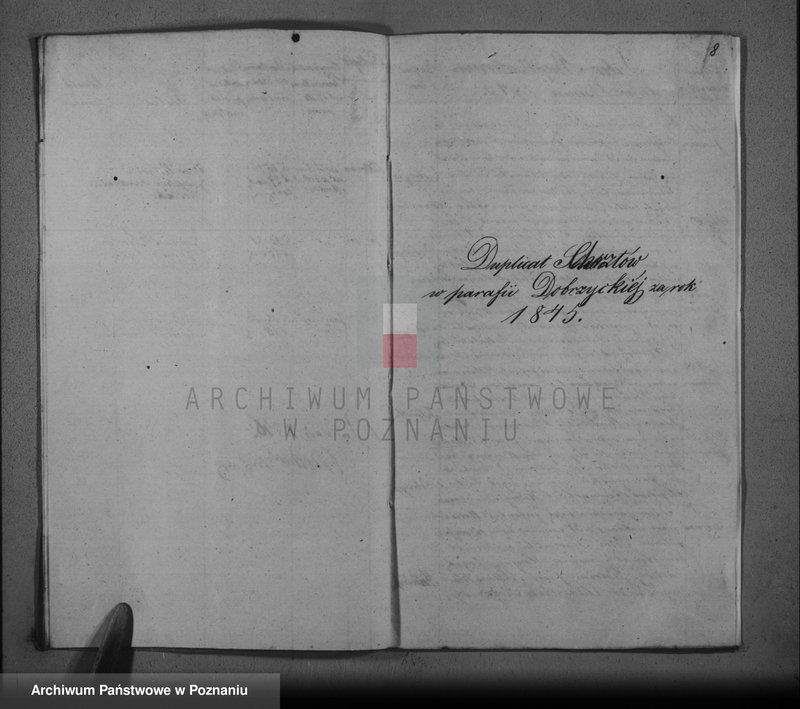 8
Duplicat Chrztów
w parafii Dobrzyckiéj za rok
1845.
ARCHIWUM PAŃSTWOWE
W POZNANIU
Archiwum Państwowe w Poznaniu